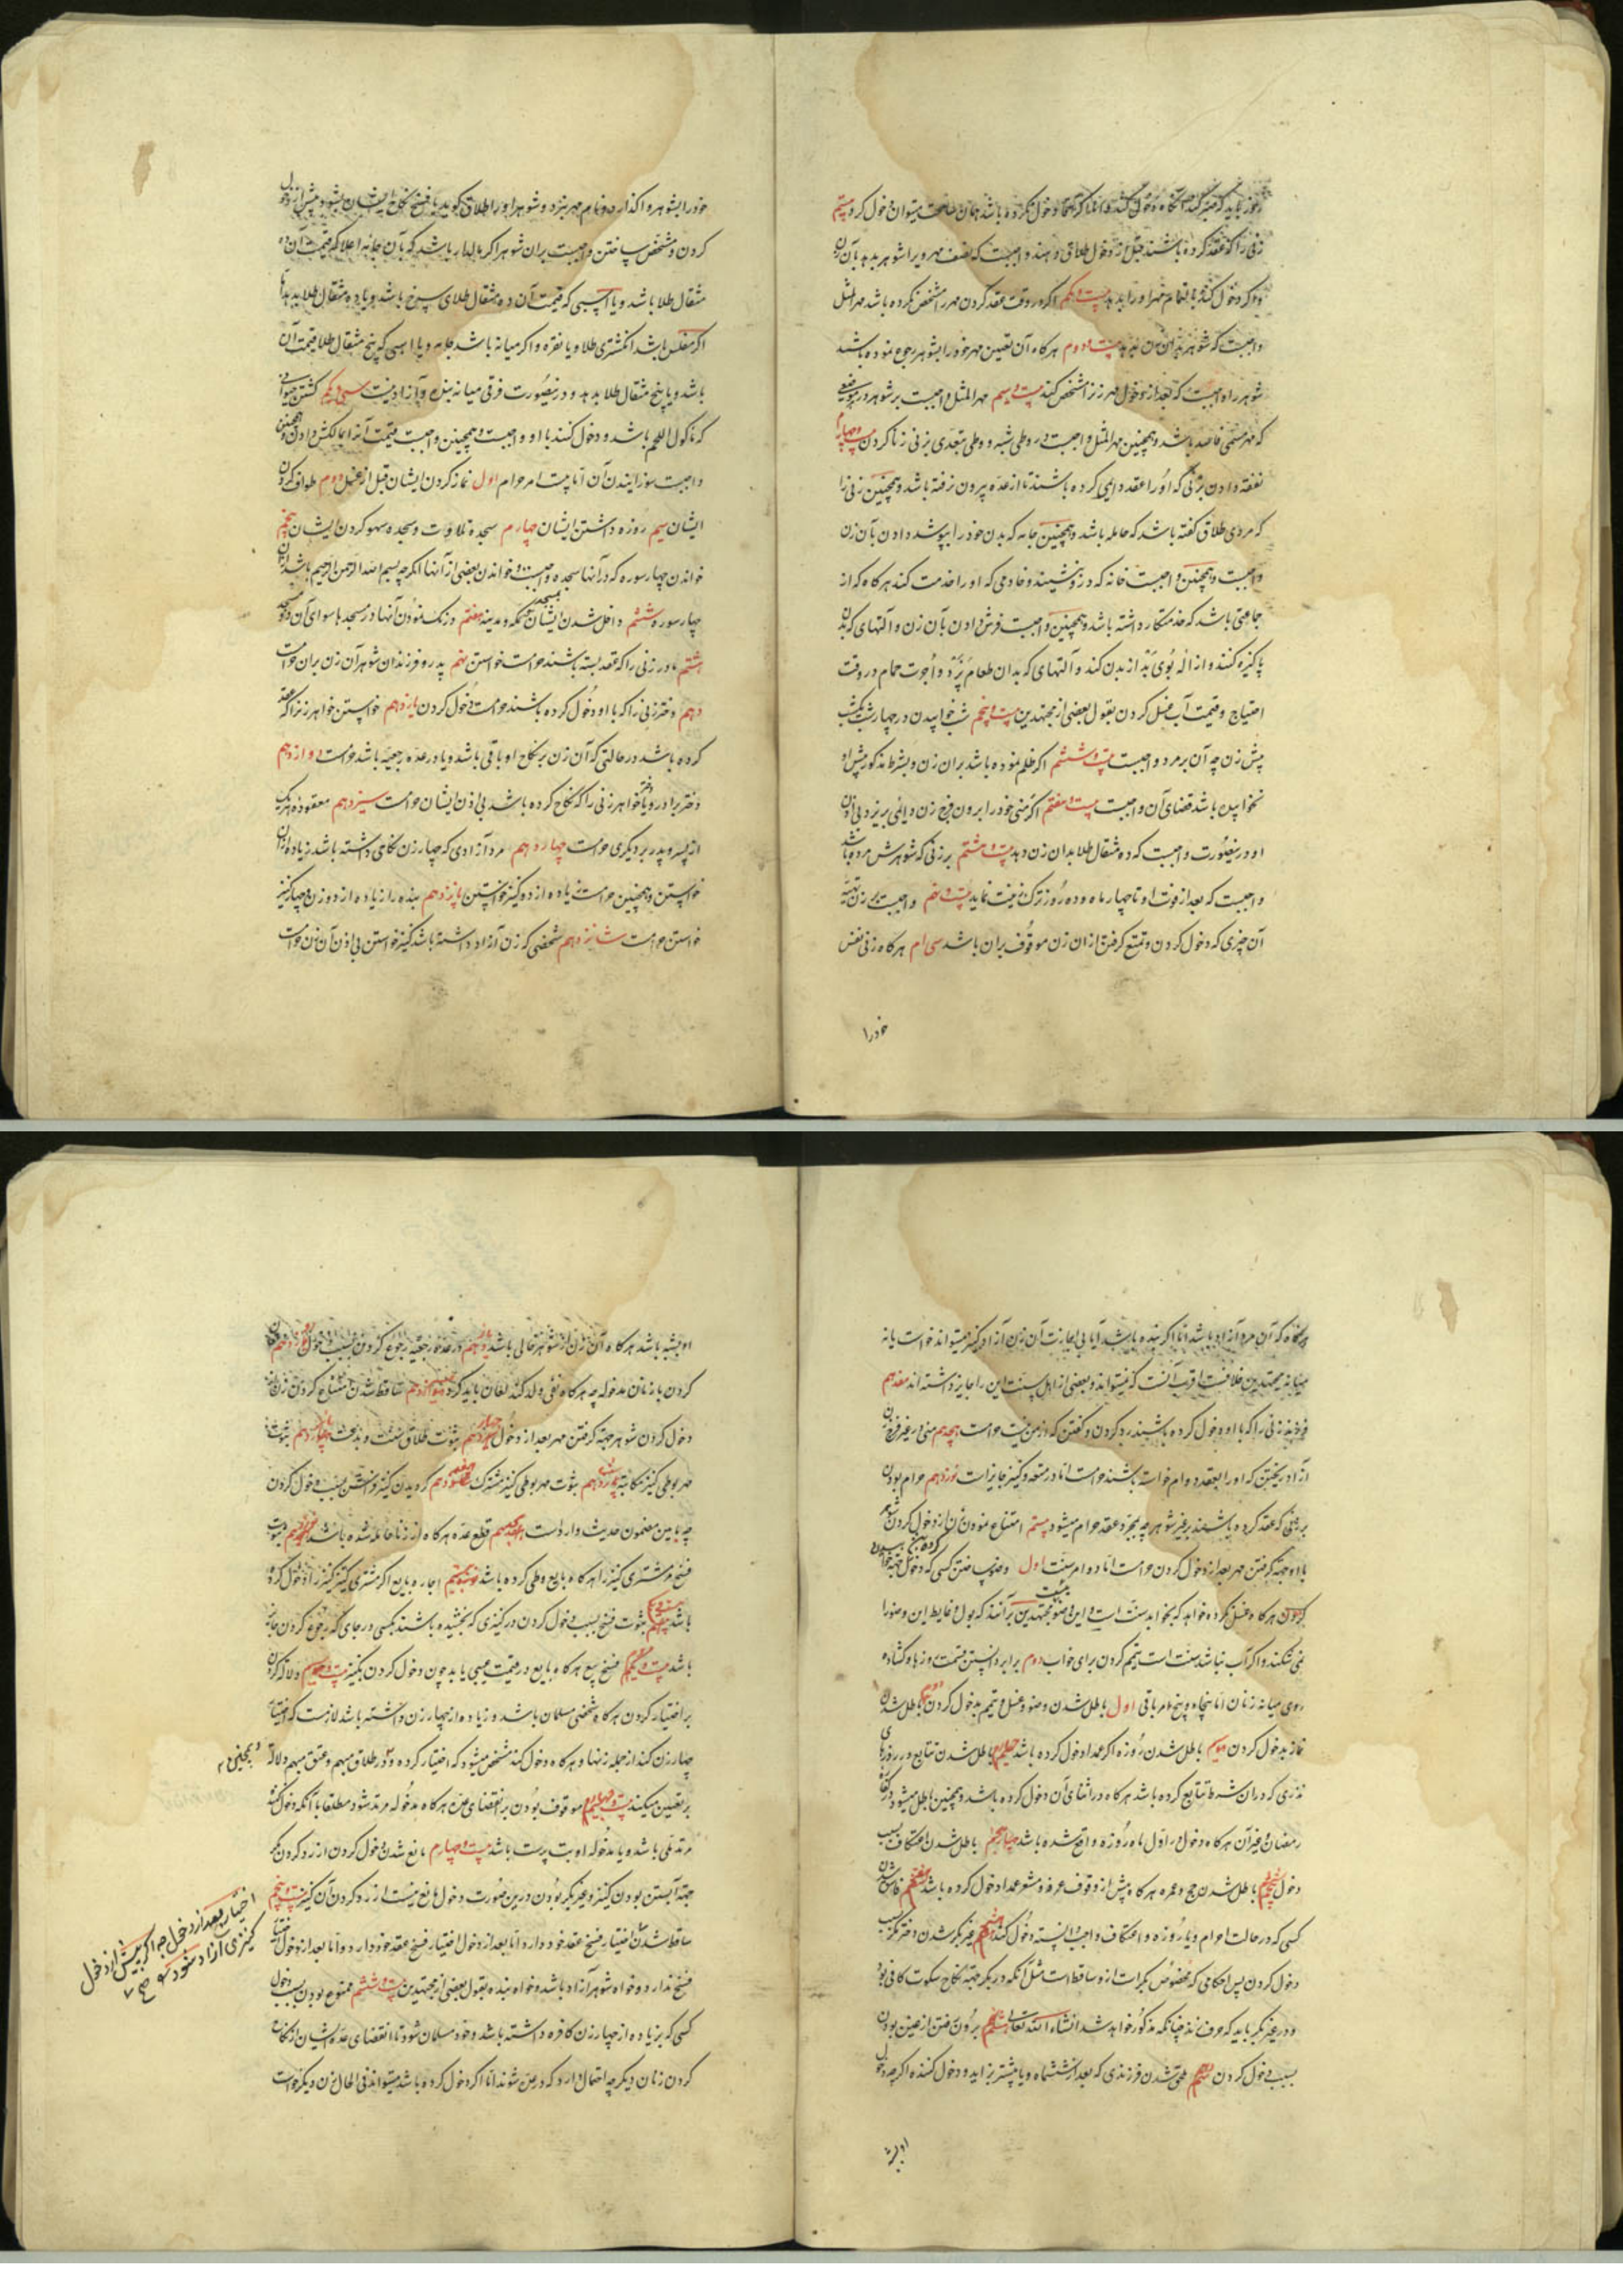 زنی را که عقد کرده باشند قبل از دخول طلاق دهند واجبست که نصف مهر ویرا شوهر بدهد بآن زن
و اگر دخول کند تمام مهر او را بدهد بیست و یکم اگر در وقت عقد کردن مهر را مشخص نکرده باشد مهر المثل
واجبست که شوهر بآن زن بدهد بیست و دوم هرگاه آن تعیین مهر خود را بشوهر رجوع نموده باشد
شوهر را واجبست که بعد از دخول مهر زن را مشخص کند بیست و سیم مهر المثل واجبست بر شوهر در موضعی
که مهر مسمی فاسد باشد و همچنین مهر المثل واجبست در وطی شبهه و وطی بتعدی بزنی زنا کردن بیست و چهارم
نفقه دادن بزنی که او را عقد دایمی کرده باشند تا از عده بیرون نرفته باشد و همچنین زنی را
که مردی طلاق گفته باشد که حامله باشد و همچنین جامه که بدن خود را بپوشد دادن بآن زن
واجبست و همچنین واجبست خانه که درو بنشیند و خادمی که او را خدمت کند هرگاه که از
جماعتی باشد که خدمتکار داشته باشد و همچنین واجبست فرش دادن بآن زن و آلتهای که بدن
پاکیزه کنند و ازاله بوی بد از بدن کند و آلتهای که بدان طعام پزد و اجرت حمام در وقت
احتیاج و قیمت آب غسل کردن بقول بعضی از مجتهدین بیست و پنجم شب خوابیدن در چهار شب یکشب
پیش زن چه آن بر مرد واجبست بیست و ششم اگر ظلم نموده باشد بران زن و بشرط مذکور پیش او
نخوابیده باشد قضای آن واجبست بیست و هفتم اگر منی خود را برون فرج زن دایمی بریزد بی اذن
او درینصورت واجبست که ده مثقال طلا بدان زن دهد بیست و هشتم بر زنی که شوهرش مرده باشد
واجبست که بعد از فوت او تا چهار ماه و ده روز ترک زینت نماید بیست و نهم واجبست بر زن تهیه
آن چیزی که دخول کردن و تمتع گرفتن از ان زن موقوف بران باشد سی ام هرگاه زنی نفس
خود را
خود را بشوهر واگذارد و نام مهر نبرد و شوهر او را طلاق گوید یا فسخ نکاح ایشان بشود پیش از دخول
کردن و مشخص ساختن واجبست بران شوهر اگر مالدار باشد که بآن جامه اعلا که قیمت آن ده
مثقال طلا باشد و یا اسبی که قیمت آن ده مثقال طلای سرخ باشد و یا ده مثقال طلا بدهد و اما
اگر مفلس باشد انگشتری طلا و یا نقره و اگر میانه باشد جامه و یا اسبی که پنج مثقال طلا قیمت آن
باشد و یا پنج مثقال طلا بدهد و درینصورت فرقی میانه بنده و آزاد نیست سی و یکم کشتن حیوانی
که ماکول اللحم باشد و دخول کنند با او واجبست و همچنین واجبست قیمت آنرا بمالکش دادن و همچنین
واجبست سوزانیدن آن اما بیست امر حرام اول نماز کردن ایشان قبل از غسل دوم طواف کردن
ایشان سیم روزه داشتن ایشان چهارم سجده تلاوت و سجده سهو کردن ایشان پنجم
خواندن چهار سوره که در آنها سجده واجبست و خواندن بعضی از آنها اگر چه بسم الله الرحمن الرحیم باشد از آن
چهار سوره ششم داخل شدن ایشان بمسجد مکه و مدینه هفتم درنگ نمودن آنها در مسجدها سوای آن دو مسجد
هشتم مادر زنی را که عقد بسته باشند حرامست خواستن نهم پدر و فرزندان شوهر آن زن بران حرامست
دهم دختر زنی را که با او دخول کرده باشند حرامست دخول کردن یازدهم خواستن خواهر زنرا که عقد
کرده باشد در حالتی که آن زن بر نکاح او باقی باشد و یا در عده رجعیه باشد حرامست دوازدهم
دختر برادر و یا دختر خواهر زنی را که نکاح کرده باشد بی اذن ایشان حرامست سیزدهم معقوده هر یک
از پسر و پدر بر دیگری حرامست چهاردهم مرد آزادی که چهار زن نکاحی داشته باشد زیاده از ان
خواستن و همچنین حرامست زیاده از دو کنیز خواستن پانزدهم بنده را زیاده از دو زن و چهار کنیز
خواستن حرامست شانزدهم شخصی که زن آزاد داشته باشد کنیز خواستن بی اذن آن زن حرامست
هرگاه که آن مرد آزاد باشد اما اگر بنده باشد آیا بی اجازت آن زن آزاد کنیز میتواند خواست یا نه
میانه مجتهدین خلافست اقرب آنست که نمیتواند و بعضی از اهل سنت این را جایز داشته اند هفدهم
فرزند زنی را که با او دخول کرده باشند رد کردن و گفتن که از من نیست حرامست هجدهم منی در غیر فرج زن
آزاد ریختن که او را بعقد دوام خواسته باشند حرامست اما در متعه و کنیز جایزاست نوزدهم حرام بودن
بر زنی که عقد کرده باشند بر غیر شوهر چه بمجرد عقد حرام میشود بیستم امتناع نمودن زن از دخول کردن شوهر
با او جهة گرفتن مهر بعد از دخول کردن حرامست اما دو امر سنت اول وضو ساختن کسی که دخول
کردن هرگاه غسل نکرده خواهد که بخوابد سنت است و این وضو مجتهدین برآنند که بول و غایط این وضو را
نمی شکند و اگر آب نباشد سنت است تیمم کردن برای خواب دوم برابر داشتن قسمت روزها و گشاده
روی میانه زنان اما پنجاه و پنج امر باقی اول باطل شدن وضو و غسل و تیمم بدخول کردن دوم باطل شدن
نماز بدخول کردن سیم باطل شدن روزه اگر عمدا دخول کرده باشد چهارم باطل شدن تتابع در روزهای
نذری که دران شرط تتابع کرده باشد هرگاه در اثنای آن دخول کرده باشد و همچنین باطل میشود در کفاره
رمضان و غیر آن هرگاه دخول در اول ماه روزه واقع شده باشد پنجم باطل شدن اعتکاف بسبب
دخول ششم باطل شدن حج و عمره هرگاه پیش از وقوف عرفه و مشعر عمدا دخول کرده باشد هفتم فاسق شدن
کسی که در حالت احرام و یا روزه و اعتکاف واجب دانسته دخول کند هشتم غیر بکر شدن دختر بکر بسبب
دخول کردن پس احکامی که مخصوص بکر است ازو ساقط است مثل آنکه در بکر جهة نکاح سکوت کافی بود
و در غیر بکر باید که حرف زند چنانکه مذکور خواهد شد انشاء الله تعالی نهم برون رفتن از عنین بودن
بسبب دخول کردن دهم ملحق شدن فرزندی که بعد از ششماه و یا بیشتر بزاید و دخول کننده اگر چه دخول
او بشبهه
او بشبهه باشد هرگاه آن زن از شوهر خالی باشد یازدهم در عده رجعیه رجوع کردن بسبب دخول دوازدهم لعان
کردن با زنان مدخوله چه هرگاه نفی ولد کند لعان باید کرد سیزدهم ساقط شدن امتناع کردن زن از
دخول کردن شوهر جهة گرفتن مهر بعد از دخول چهاردهم ثبوت طلاق سنت و بدعت پانزدهم ثبوت
مهر بوطی کنیز مکاتبه شانزدهم ثبوت مهر بوطی کنیز مشترک هفدهم گردیدن کنیز فراش بسبب دخول کردن
چه باین مضمون حدیث وارد است هجدهم قطع عده هرگاه از زنا حامله شده باشد نوزدهم ثبوت
فسخ مشتری کنیز را هرگاه بایع وطی کرده باشد بیستم اجازه بایع اگر مشتری کنیز را دخول کرده
باشد بیست و یکم ثبوت فسخ بسبب دخول کردن در کنیزی که بخشیده باشند بکسی در جای که رجوع کردن جایز
باشد بیست و دوم فسخ بیع هرگاه بایع در قیمت عیبی یابد چون دخول کردن بکنیز بیست و سیم دلالت کردن
بر اختیار کردن هرگاه شخصی مسلمان باشد و زیاده از چهار زن داشته باشد لازمست که اختیار
چهار زن کند از جمله زنها و هرگاه دخول کند مشخص میشود که اختیار کرده و در طلاق مبهم و عتق مبهم دلالت
و همچنین
بر تعیین میکند بیست و چهارم موقوف بودن بر انقضای عده هرگاه مدخوله مرتد شود مطلقا یا آنکه دخول کننده
مرتد ملی باشد و یا مدخوله او بت پرست باشد بیست و چهارم مانع شدن دخول کردن از رد کردن مگر
جهة آبستن بودن کنیز و غیر بکر بودن درین صورت دخول مانع نیست از رد کردن آن کنیز بیست و پنجم
ساقط شدن اختیار فسخ عقد خود دارد اما بعد از دخول اختیار فسخ عقد خود ندارد و اما بعد از دخول اختیار
فسخ ندارد و خواه شوهر آزاد باشد و خواه بنده بقول بعضی از مجتهدین بیست و ششم ممنوع بودن بسبب دخول
کسی که بزیاده از چهار زن کافره داشته باشد و خود مسلمان شود تا انقضای عده ایشان از نکاح
کردن زنان دیگر چه احتمال دارد که در عده مسلمان شوند اما اگر دخول نکرده باشد میتواند فی الحال زن دیگر خواست
اختیار بعد از دخول چه اگر پیش از دخول
کنیزی آزاد شود